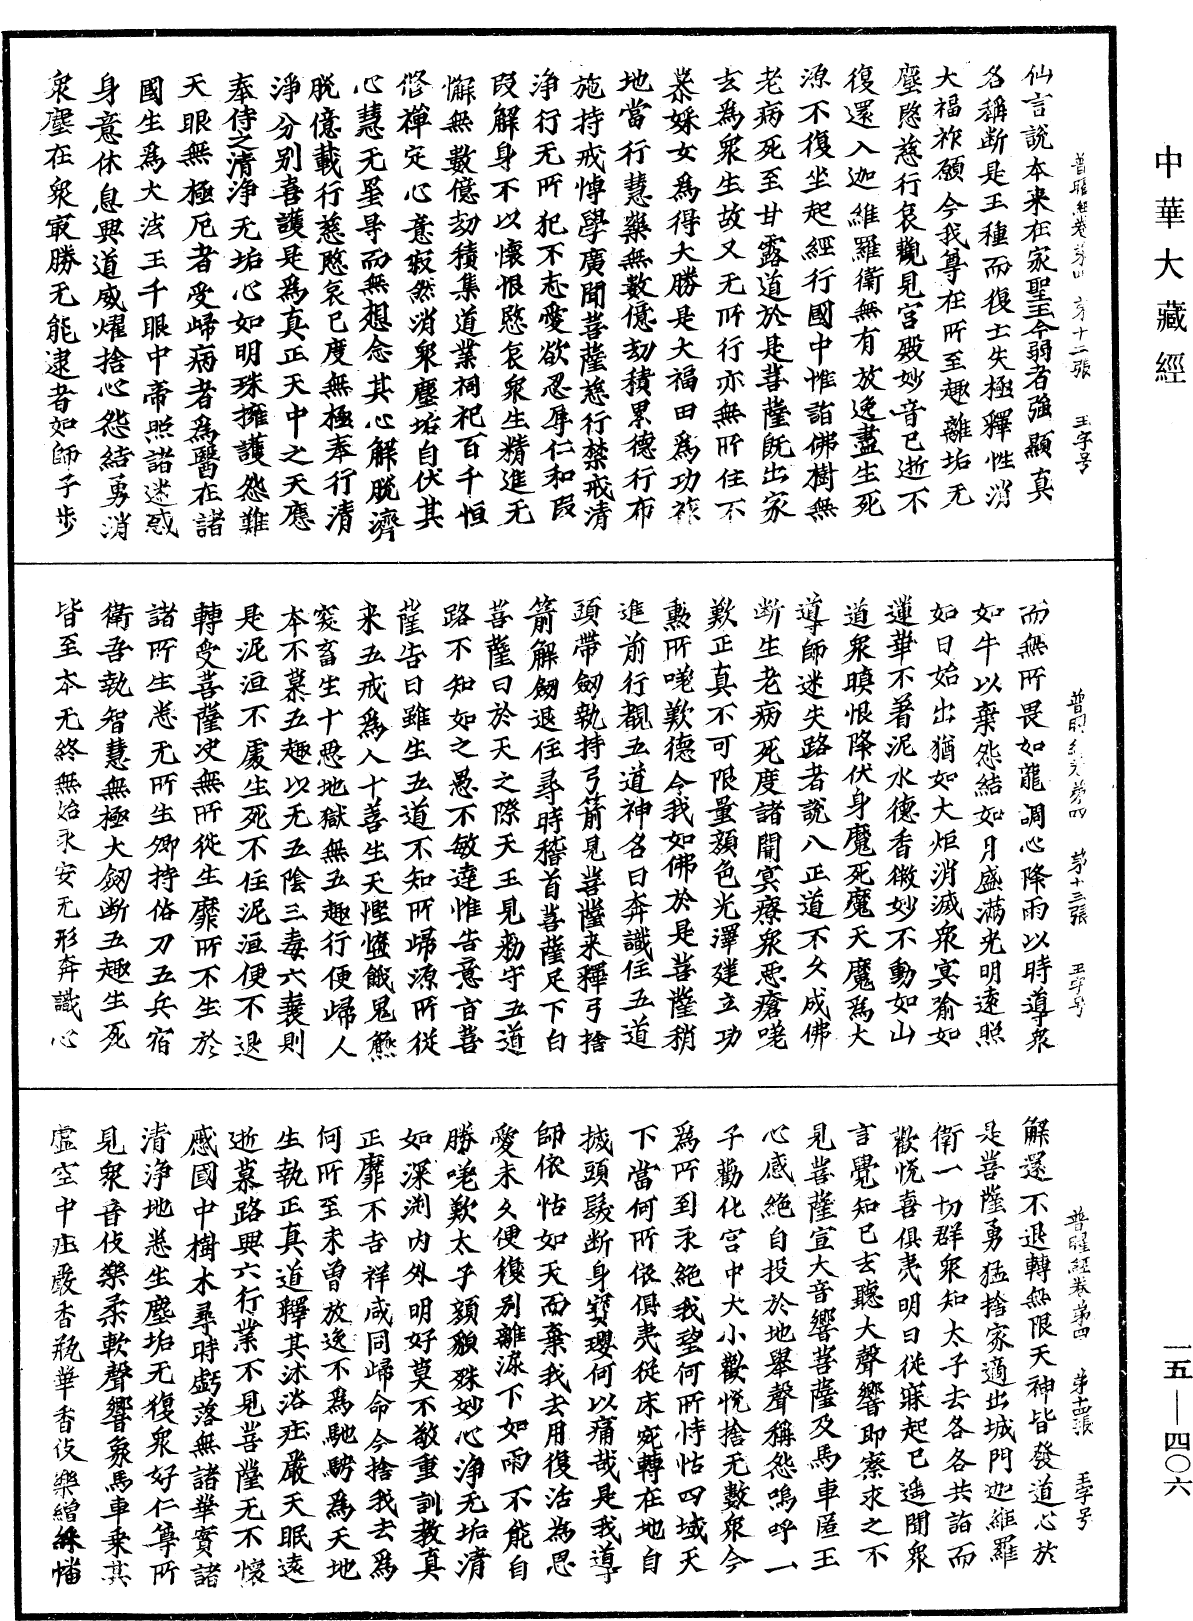 中華大藏經
一五—四〇六
普曜經卷第四 第十二張 王字号
仙言說本来在家聖至今弱者強顯真
名稱断是王種而復士失極釋性消
大福祚願今我尊在所至趣離垢无
塵愍慈行哀觀見宫殿妙音已逝不
復還入迦維羅衛無有放逸盡生死
源不復坐起經行國中惟詣佛樹無
老病死至甘露道於是菩薩既出家
去為衆生故又无所行亦無所住不
慕婇女為得大勝是大福田為功祚
地當行慧藥無數億劫積累德行布
施持戒博學廣聞菩薩慈行禁戒清
浄行无所犯不志愛欲忍辱仁和設
段解身不以懷恨愍哀衆生精進无
懈無數億劫積集道業祠祀百千恒
修禪定心意寂然消衆塵垢自伏其
心慧无罣导而無想念其心解脱濟
脱億載行慈愍哀已度無極奉行清
淨分别喜護是為真正天中之天應
奉侍之清浄无垢心如明珠擁護怨難
天眼無極厄者受歸病者為醫在諸
國生為大法王千眼中帝照諸迷惑
身意休息興道威燿捨心怨結勇消
衆塵在衆㝡勝无能逮者如師子步
普曜經卷第四 第十三張 王字号
而無所畏如龍調心降雨以時導衆
如牛以棄怨結如月盛滿光明遠照
如日始出猶如大炬消滅衆冥喻如
蓮華不著泥水德香微妙不動如山
道衆瞋恨降伏身魔死魔天魔為大
導師迷失路者說八正道不久成佛
断生老病死度諸闇冥療衆惡瘡嗟
歎正真不可限量顔色光澤建立功
勲所嗟歎德今我如佛於是菩薩稍
進前行覩五道神名曰奔識住五道
頭帶劒執持弓箭見菩薩来釋弓捨
箭解劒退住尋時稽首菩薩足下白
菩薩曰於天之際天王見勑守五道
路不知如之愚不敏達惟告意旨菩
薩告曰雖生五道不知所歸源所從
来五戒為人十善生天慳慳餓鬼觝
突畜生十惡地獄無五趣行便歸人
本不慕五趣以无五陰三毒六衰則
是泥洹不處生死不住泥洹便不退
轉受菩薩决無所從生靡所不生於
諸所生悉无所生卿持俗刀五兵宿
衛吾執智慧無極大劒断五趣生死
皆至本无終無始永安无形奔識心
普曜經卷第四 第十四張 王字号
解逮不退轉無限天神皆發道心於
是菩薩勇猛捨家適出城門迦維羅
衛一切群衆知太子去各各共詣而
歡悦喜俱夷明曰從寐起已遥聞衆
言覺知已去聽大聲響即察求之不
見菩薩宣大音響菩薩及馬車匿王
心感絶自投於地舉聲稱怨嗚呼一
子勸化宫中大小歡悦捨无數衆今
為所到永絶我望何所恃怙四域天
下當何所依俱夷從床宛轉在地自
搣頭髮断身寶瓔何以痛哉是我導
師依怙如天而棄我去用復活為恩
愛未久便復别離淚下如雨不能自
勝嗟歎太子顔貌殊妙心淨无垢清
如深渊内外明好莫不敬重訓教真
正靡不吉祥咸同歸命今捨我去為
何所至未曾放逸不為馳騁為天地
生執正真道釋其沐浴莊嚴天眠遠
逝慕路興六行業不見菩薩无不懷
慼國中樹木尋時虧落無諸華實諸
清浄地悉生塵垢无復衆好仁等所
見衆音伎樂柔軟聲響象馬車乘其
虚空中莊嚴香瓶華香伎樂繒綵幡